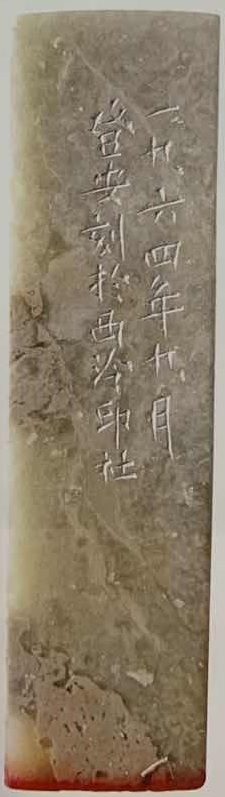 一九六四年九月
登安刻於西泠印社